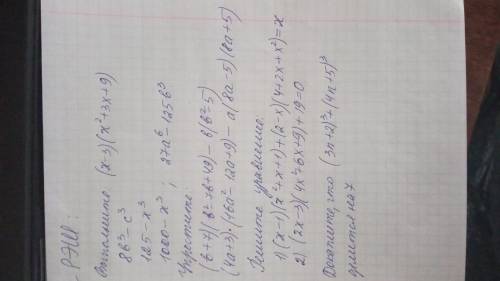 РЭШ:
Выполните (x-3)(x²+3x+9)
8b³-c³
125-x³
1000-x³ ; 27a⁶-125b³
Упростите:
(b+7)(b²-7b+49)-b(b²-5)
(4a+3)·(16a²-12a+9)-a(8a-5)(8a+5)
Решите уравнение:
1)(x-1)(x²+x+1)+(2-x)(4+2x+x²)=x
2) (2x-3)(4x²+6x+9)+19=0
Докажите, что (3n+2)³+(4n+5)³
делится на 7